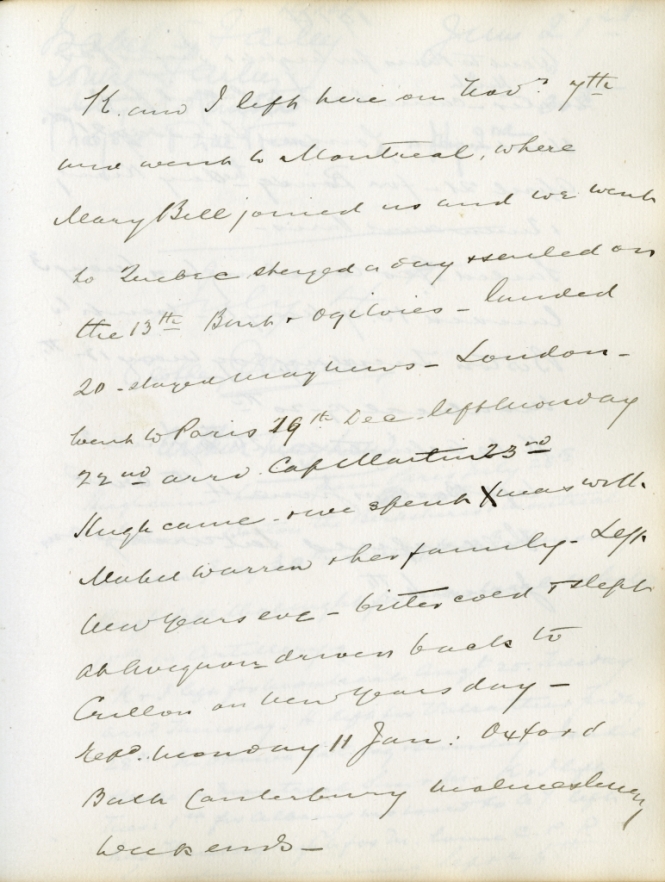 K. and I left here on Nov. 7th
and went to Montreal, where
Mary Bell joined us and we went
to Quebec stayed a day & sailed on
the 13th & Ogilvies - landed
20 - stayed - London -
went to Paris 19th Dec - left Monday
22nd arrd. Cap Martin 23rd
Hugh came - & we spent Xmas with
Mabel Warren & her family - Left
New Years eve - bitter cold & slept
at Avignon driven back to
Crillon on New Years day -
Monday 11 Jan: Oxford
Bath Canterbury Malmesbury
Week ends -